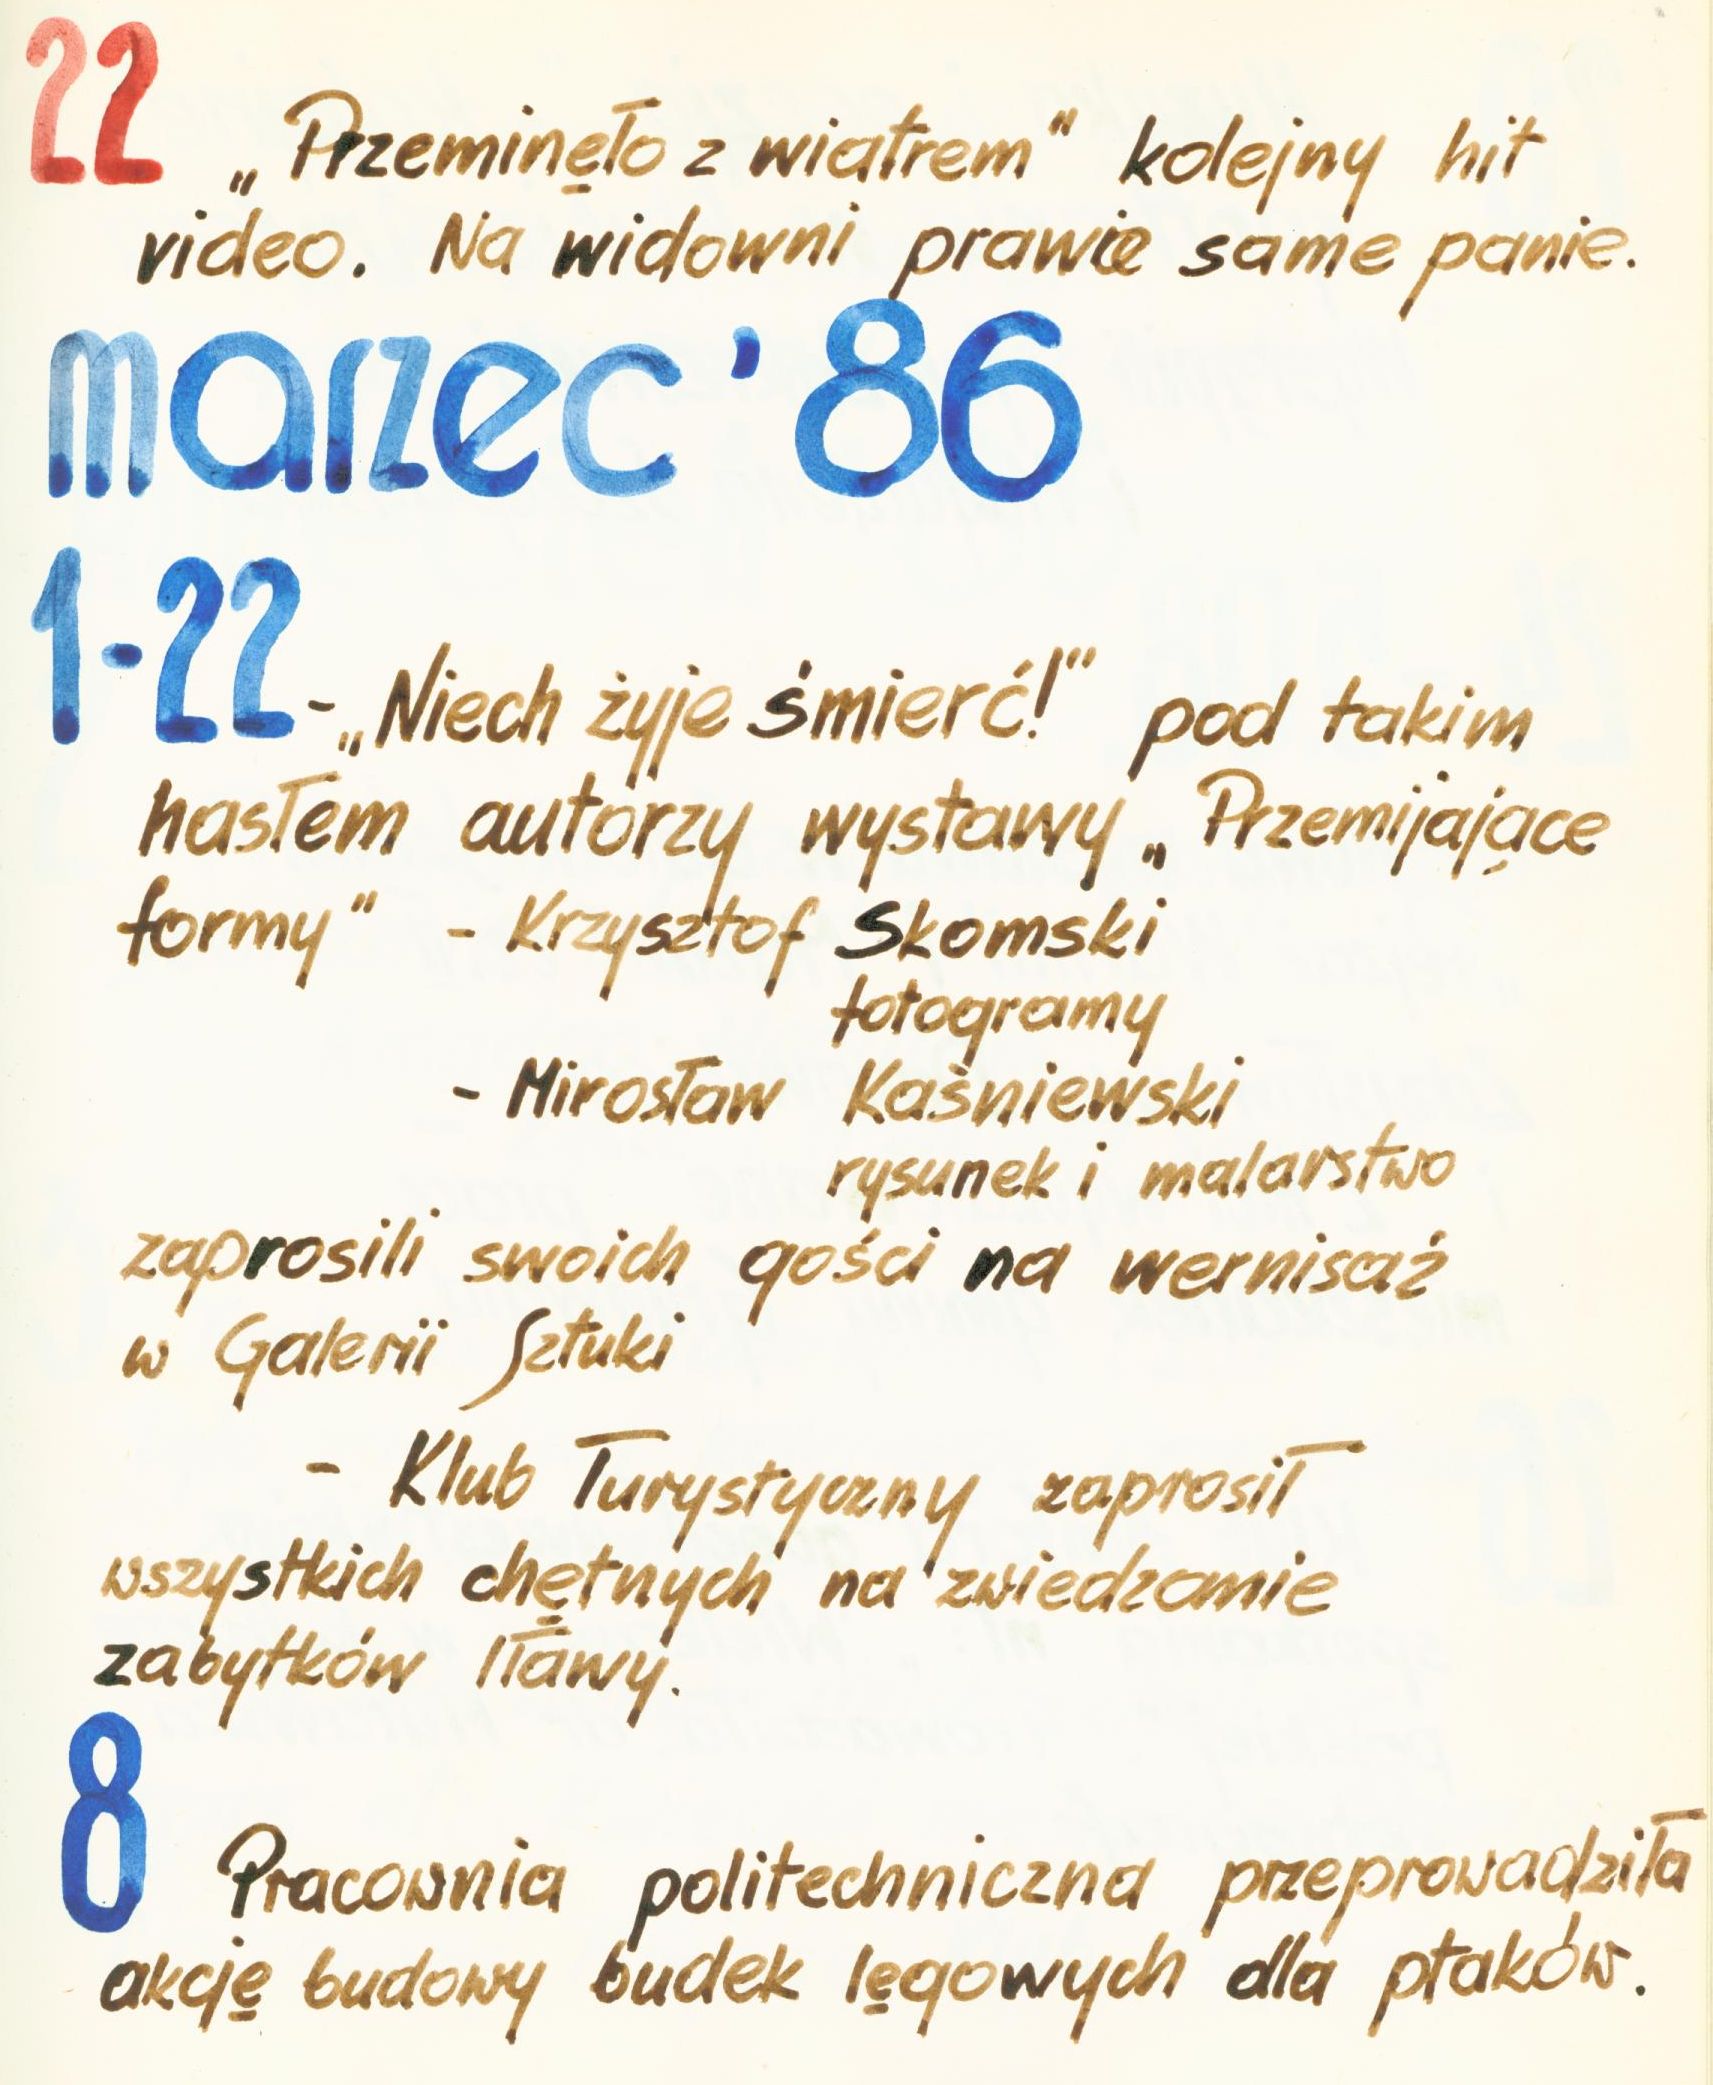 22
„Przeminęło z wiatrem" kolejny hit
video. Na widowni prawie same panie.
marzec '86
1-22
- „Niech żyje śmierć!" pod takim
hasłem autorzy wystawy „Przemijające
formy" - Krzysztof Skomski
fotogramy
- Mirosław Kaśniewski
rysunek i malarstwo
zaprosili swoich gości na wernisaż
w Galerii Sztuki
- Klub Turystyczny zaprosił
wszystkich chętnych na zwiedzanie
zabytków Iławy.
8
Pracownia politechniczna przeprowadziła
akcję budowy budek lęgowych dla ptaków.